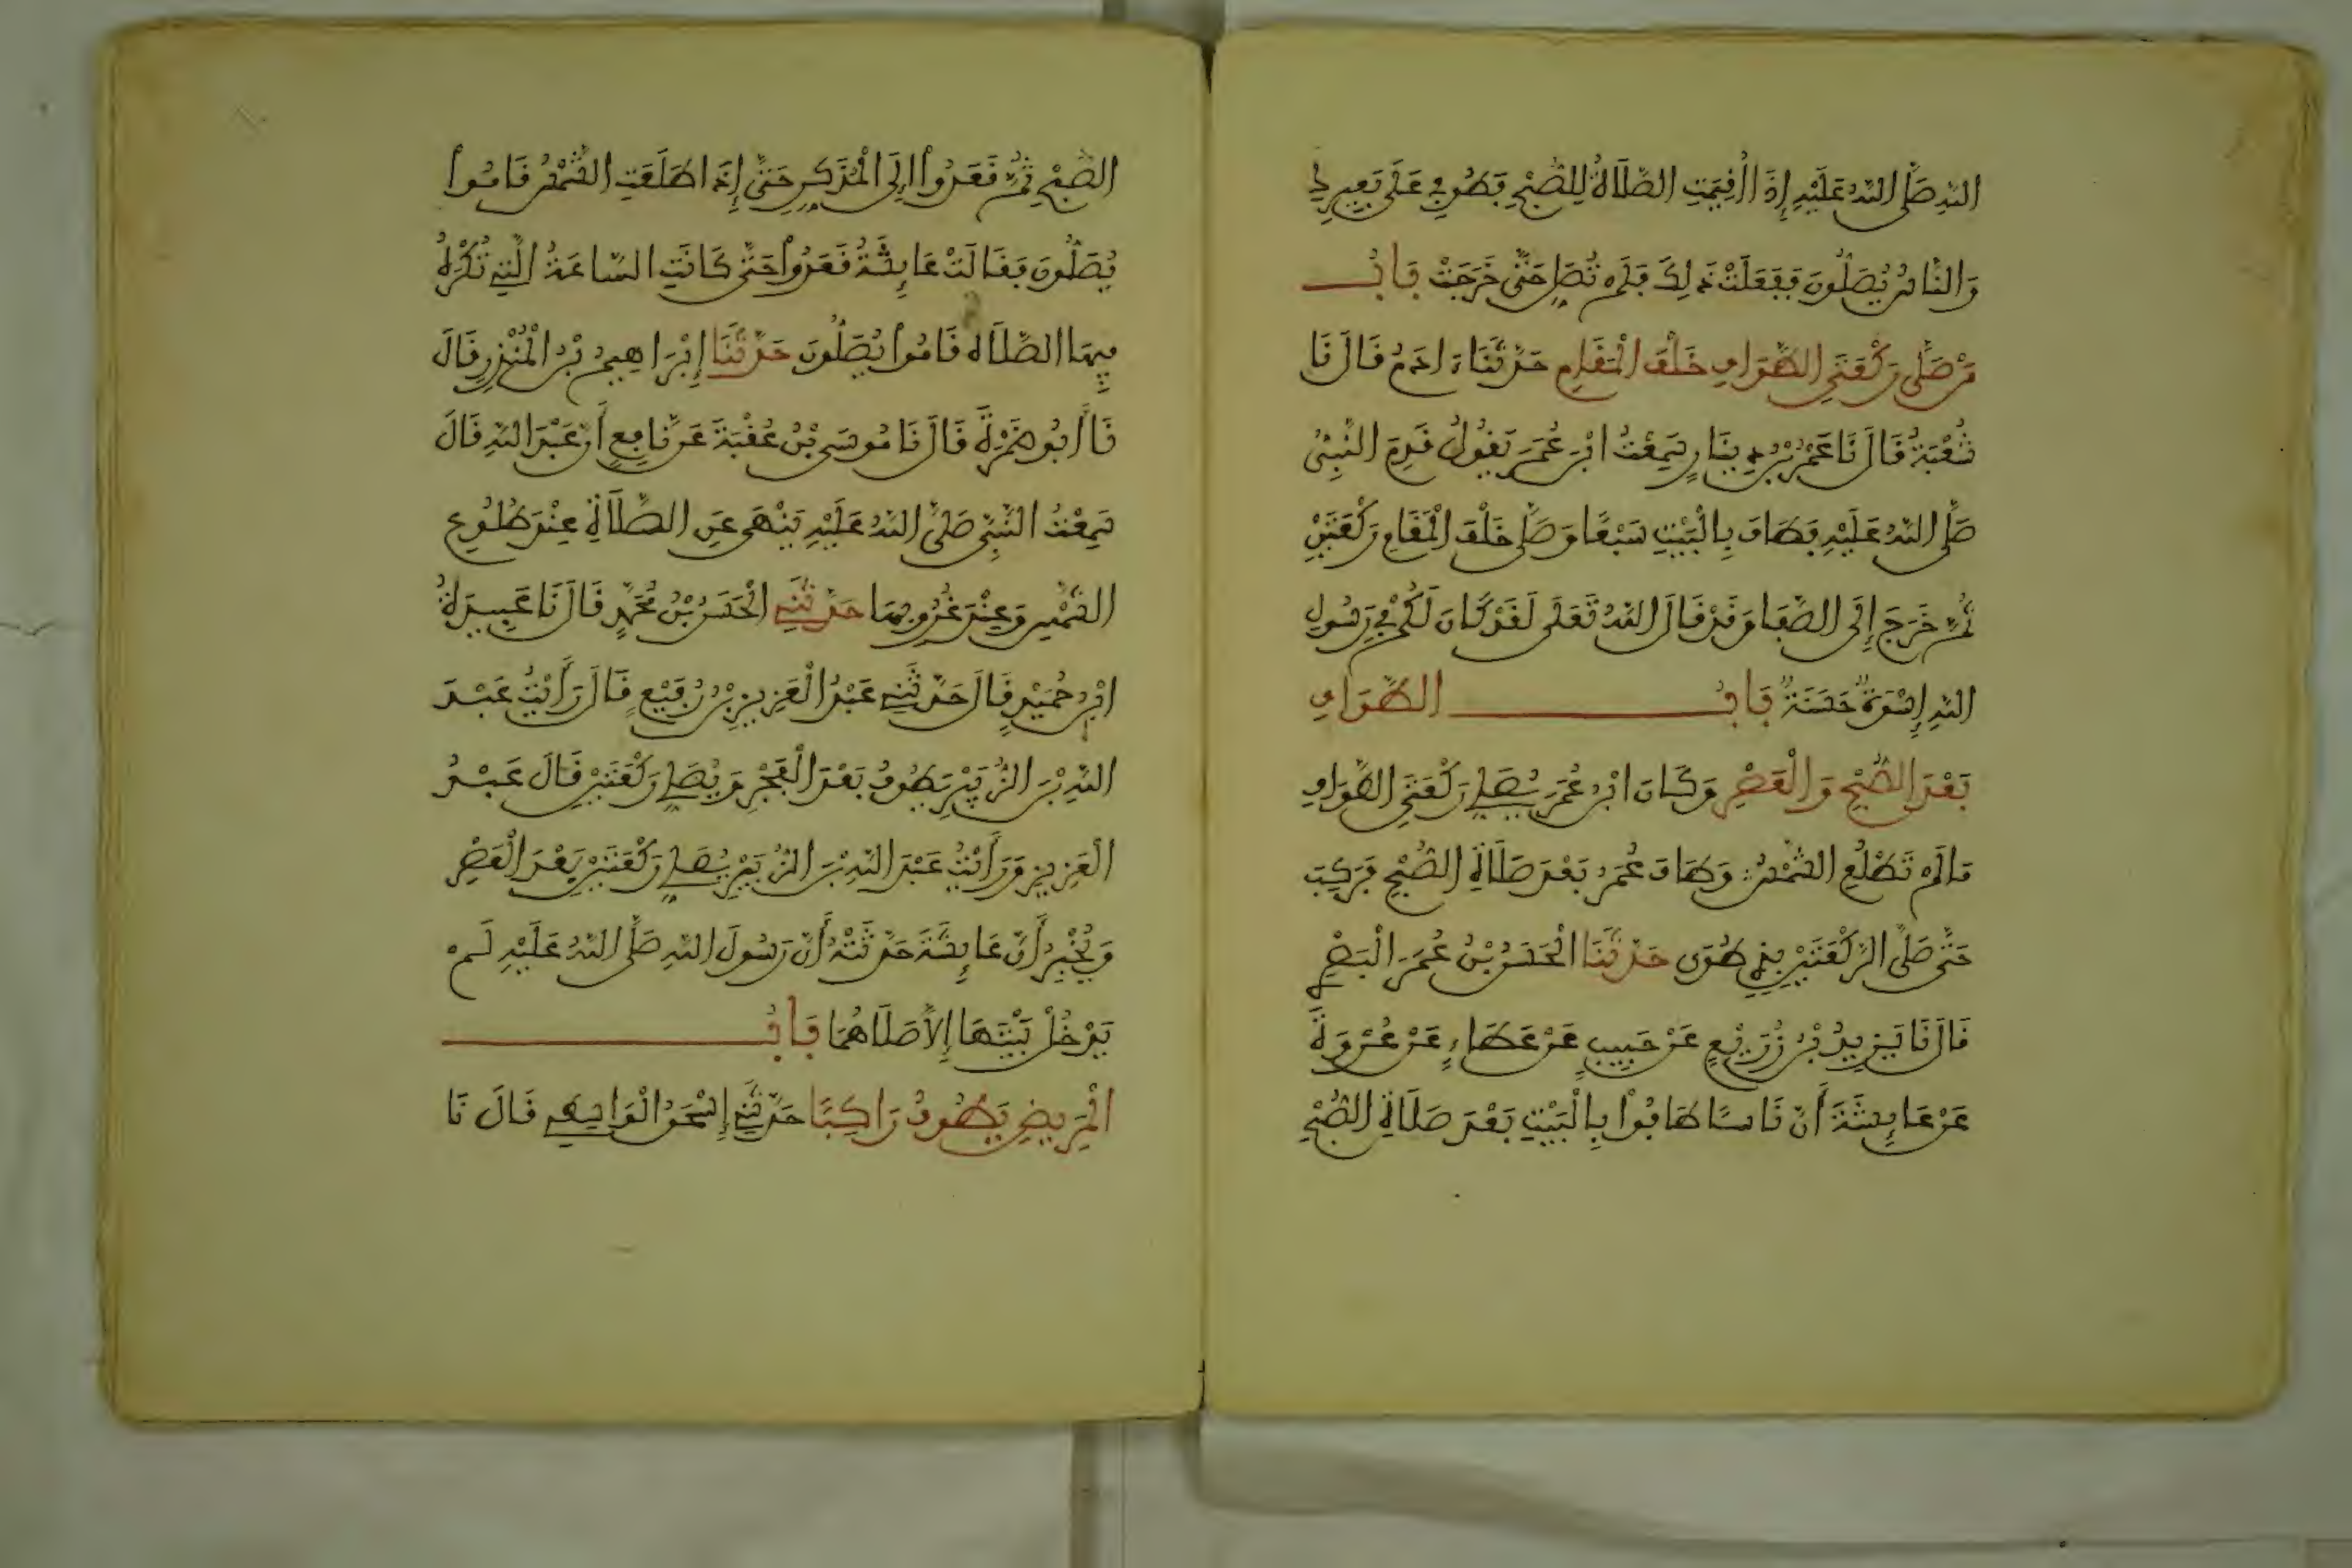 اللَّهِ صَلَّى اللَّهُ عَلَيْهِ إِذَا أُقِيمَتِ الصَّلَاةُ لِلصُّبْحِ فَطُوفِي عَلَى بَعِيرِكِ
وَالنَّاسُ يُصَلُّونَ فَفَعَلَتْ ذَلِكَ فَلَمْ تُصَلِّ حَتَّى خَرَجَتْ بَابُ
مَنْ صَلَّى رَكْعَتَيِ الطَّوَافِ خَلْفَ الْمَقَامِ حَدَّثَنَا ءَادَمُ قَالَ نَا
شُعْبَةُ قَالَ نَا عَمْرُ بْنُ دِينَارٍ سَمِعْتُ ابْنَ عُمَرَ يَقُولُ قَدِمَ النَّبِيُّ
صَلَّى اللَّهُ عَلَيْهِ فَطَافَ بِالْبَيْتِ سَبْعًا وَصَلَّى خَلْفَ الْمَقَامِ رَكْعَتَيْنِ
ثُمَّ خَرَجَ إِلَى الصَّفَا وَقَدْ قَالَ اللَّهُ تَعَلَى لَقَدْ كَانَ لَكُمْ فِي رَسُولِ
اللَّهِ إِسْوَةٌ حَسَنَةٌ بَابُ الطَّوَافِ
بَعْدَ الصُّبْحِ وَالْعَصْرِ وَكَانَ ابْنُ عُمَرَ يُصَلِّي رَكْعَتَيِ الطَّوَافِ
مَا لَمْ تَطْلُعِ الشَّمْسُ وَطَافَ عُمَرُ بَعْدَ صَلَاةِ الصُّبْحِ فَرَكِبَ
حَتَّى صَلَّى الرَّكْعَتَيْنِ بِذِي طُوًى حَدَّثَنَا الْحَسَنُ بْنُ عُمَرَ الْبَصْرِي
قَالَ نَا يَزِيدُ بْنُ زُرَيْعٍ عَنْ حَبِيبٍ عَنْ عَطَاءٍ عَنْ عُرْوَةَ
عَنْ عَائِشَةَ أَنَّ نَاسًا طَافُوا بِالْبَيْتِ بَعْدَ صَلَاةِ الصُّبْحِ
الصُّبْحِ ثُمَّ قَعَدُوا إِلَى الْمُذَكِّرِ حَتَّى إِذَا طَلَعَتِ الشَّمْسُ قَامُوا
يُصَلُّونَ فَقَالَتْ عَائِشَةُ قَعَدُوا حَتَّى كَانَتِ السَّاعَةُ الَّتِي تُكْرَهُ
فِيهَا الصَّلَاةُ قَامُوا يُصَلُّونَ حَدَّثَنَا إِبْرَاهِيمُ بْنُ الْمُنْذِرِ قَالَ
نَا أَبُو ضَمْرَةَ قَالَ نَا مُوسَى بْنُ عُقْبَةَ عَنْ نَافِعٍ أَنَّ عَبْدَ اللَّهِ قَالَ
سَمِعْتُ النَّبِيَّ صَلَّى اللَّهُ عَلَيْهِ يَنْهَى عَنِ الصَّلَاةِ عِنْدَ طُلُوعِ
الشَّمْسِ وَعِنْدَ غُرُوبِهَا حَدَّثَنِي الْحَسَنُ بْنُ مُحَمَّدٍ قَالَ نَا عَبِيدَةُ
ابْنُ حُمَيْدٍ قَالَ حَدَّثَنِي عَبْدُ الْعَزِيزِ بْنُ رُفَيْعٍ قَالَ رَأَيْتُ عَبْدَ
اللَّهِ بْنَ الزُّبَيْرِ يَطُوفُ بَعْدَ الْفَجْرِ وَيُصَلِّي رَكْعَتَيْنِ قَالَ عَبْدُ
الْعَزِيزِ وَرَأَيْتُ عَبْدَ اللَّهِ بْنَ الزُّبَيْرِ يُصَلِّي رَكْعَتَيْنِ بَعْدَ الْعَصْرِ
وَيُخْبِرُ أَنَّ عَائِشَةَ حَدَّثَتْهُ أَنَّ رَسُولَ اللَّهِ صَلَّى اللَّهُ عَلَيْهِ لَمْ
يَدْخُلْ بَيْتَهَا إِلَّا صَلَّاهُمَا بَابُ
الْمَرِيضِ يَطُوفُ رَاكِبًا حَدَّثَنِي إِسْحَقُ الْوَاسِطِي قَالَ نَا